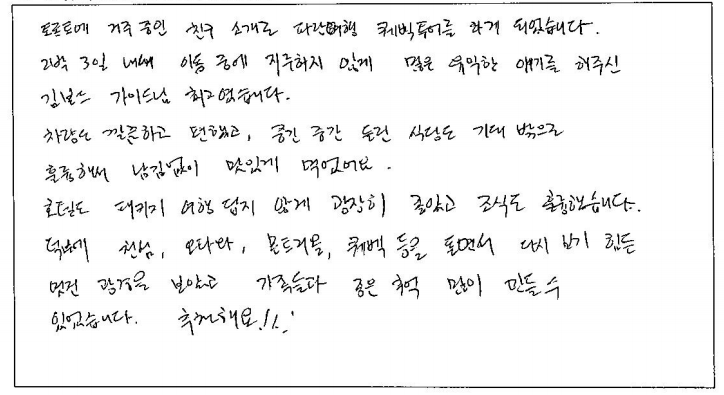 토론토에 거주 중인 친구 소개로 파란여행 퀘벡투어를 하게 되었습니다.
2박 3일 내내 이동 중에 지루하지 않게 많은 유익한 얘기를 해주신
김보스 가이드님 최고였습니다.
차량도 깔끔하고 편했고, 중간 중간 들린 식당도 기대 밖으로
훌륭해서 남김없이 맛있게 먹었어요.
호텔도 패키지 여행 답지 않게 굉장히 좋았고 조식도 훌륭했습니다.
덕분에 천섬, 오타와, 몬트리올, 퀘벡 등을 돌면서 다시 보기 힘든
멋진 광경을 보았고 가족들과 좋은 추억 많이 만들 수
있었습니다. 추천해요!!